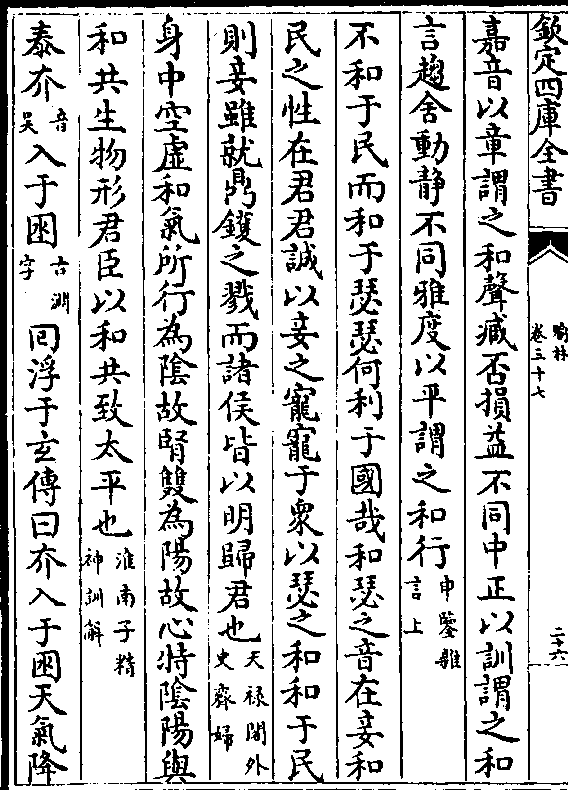 欽定四庫全書
喻林
卷三十七
二十六
嘉音以章謂之和聲臧否損益不同中正以訓謂之和
言趨舍動靜不同雅度以平謂之和行申鑒雜言上
不和于民而和于瑟瑟何利于國哉和瑟之音在妾和
民之性在君君誠以妾之寵寵于衆以瑟之和和于民
則妾雖就鼎鑊之戮而諸侯皆以明歸君也天祿閣外史齊婦
身中空虛和氣所行為陰故腎雙為陽故心特陰陽與
和共生物形君臣以和共致太平也淮南子精神訓解
泰夰音昊入于囦古淵字囘浮于玄傳曰夰入于囦天氣降